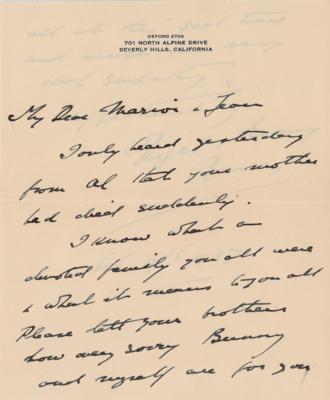 OXFORD 2706
701 NORTH ALPINE DRIVE
BEVERLY HILLS, CALIFORNIA
My Dear Marion & Jean
I only heard yesterday
from Al that your mother
had died suddenly.
I know what a
devoted family you all were
& what it means to you all
Please tell your brothers
how very sorry Bunny
and myself are for you